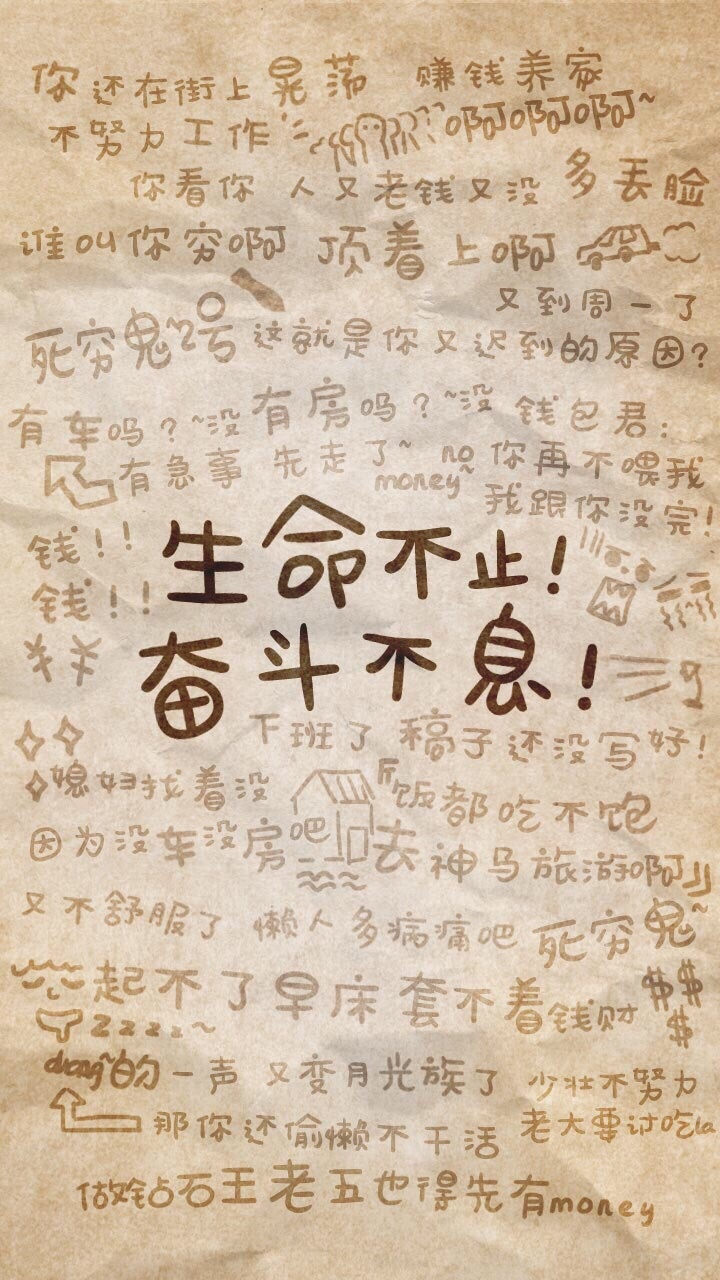 你还在街上晃荡 赚钱养家
不努力工作 啊啊啊~
你看你 人又老钱又没 多丢脸
谁叫你穷啊 顶着上啊
又到周一了
死穷鬼~2号 这就是你又迟到的原因?
有车吗?~没 有房吗?~没 钱包君:
有急事 先走了~ no money~ 你再不喂我
我跟你没完!
钱!!
钱!!
¥¥
生命不止!
奋斗不息!
下班了 稿子还没写好!
媳妇找着没 斤饭都吃不饱
因为没车没房吧 去神马旅游啊
又不舒服了 懒人多病痛吧 死穷鬼~
起不了早床 套不着钱财 $$$
zzzz~
duang~的一声 又变月光族了 少壮不努力
那你还偷懒不干活 老大要讨吃la
做钻石王老五也得先有money